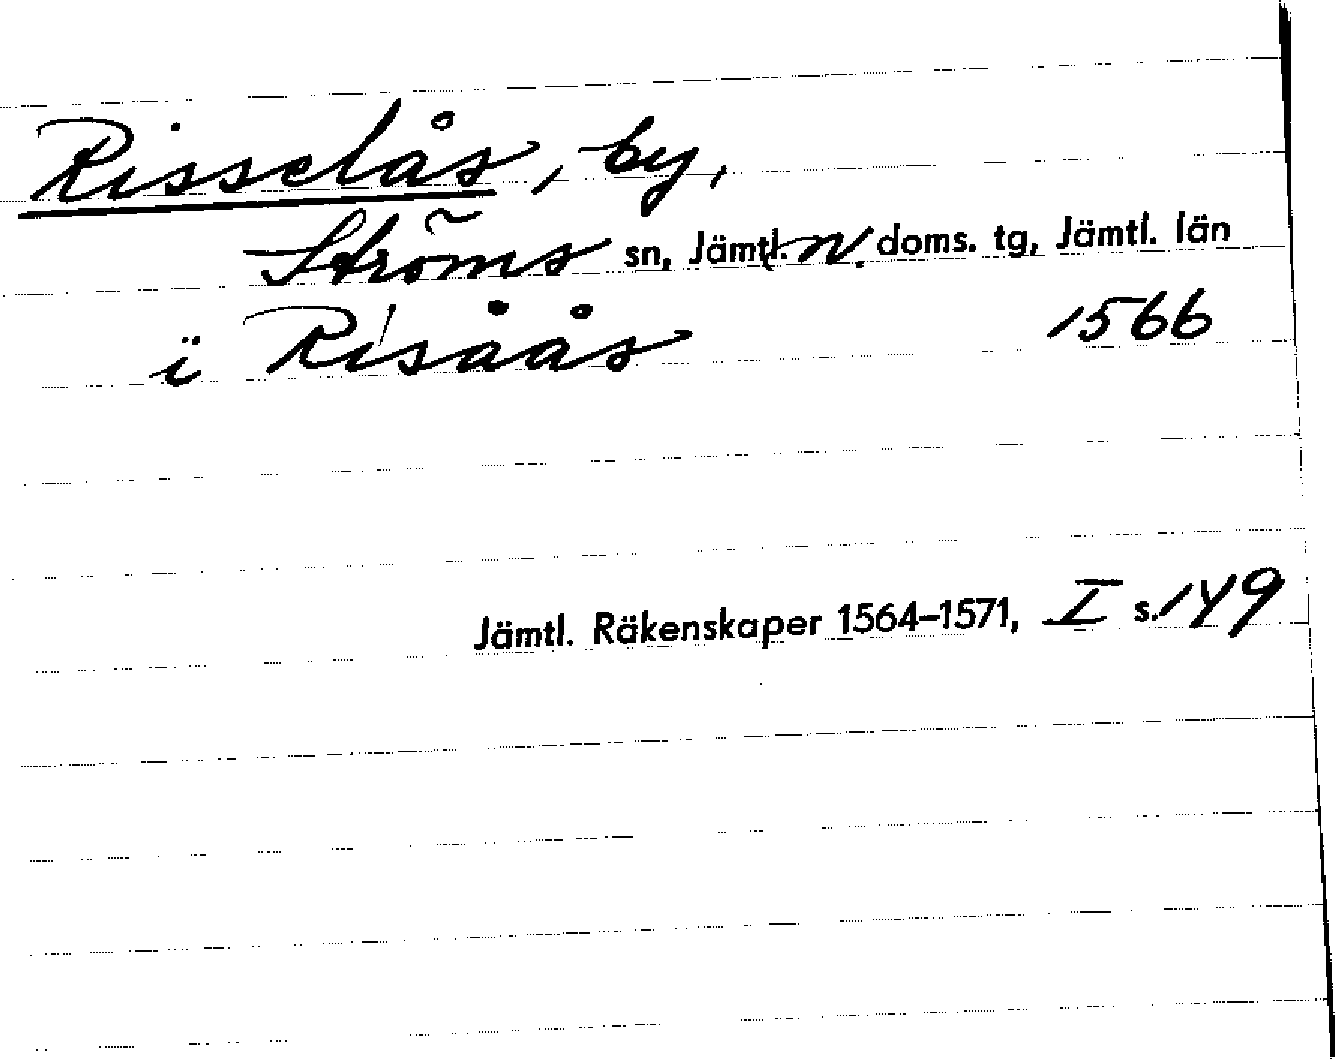 Risselås, by,
Ströms sn, Jämtl. N. doms. tg, Jämtl. län
i Risåås 1566
Jämtl. Räkenskaper 1564–1571, I s. 149